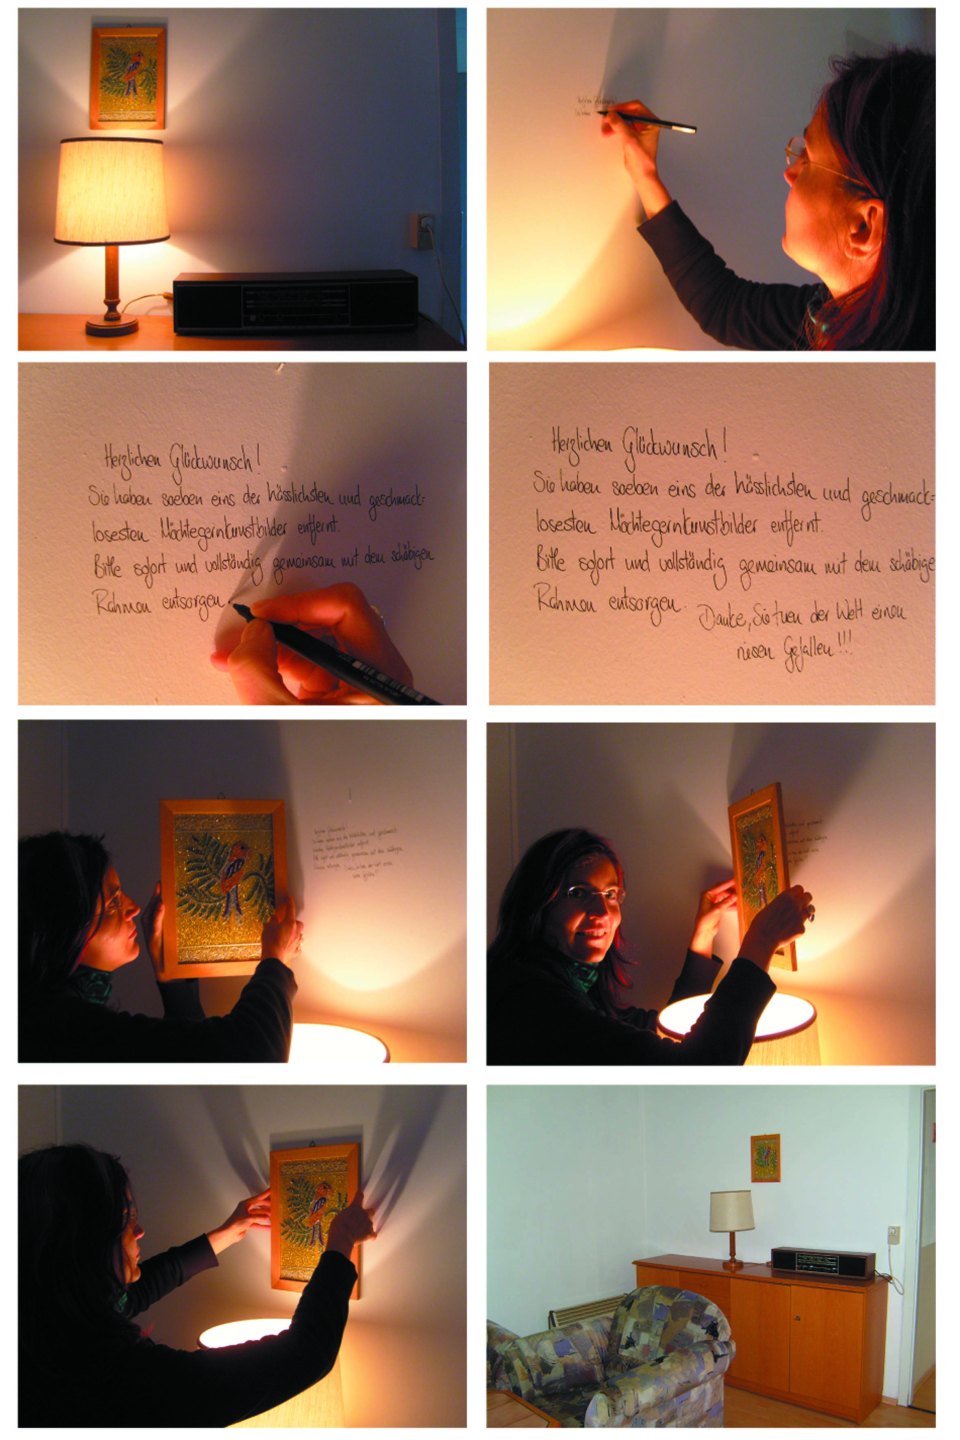 Herzlichen Glückwunsch!
Sie haben soeben eins der hässlichsten und geschmack=
losesten Möchtegernkunstbilder entfernt.
Bitte sofort und vollständig gemeinsam mit dem schäbigen
Rahmen entsorgen.
Herzlichen Glückwunsch!
Sie haben soeben eins der hässlichsten und geschmack=
losesten Möchtegernkunstbilder entfernt.
Bitte sofort und vollständig gemeinsam mit dem schäbige
Rahmen entsorgen. Danke, Sie tuen der Welt einen
riesen Gefallen!!!